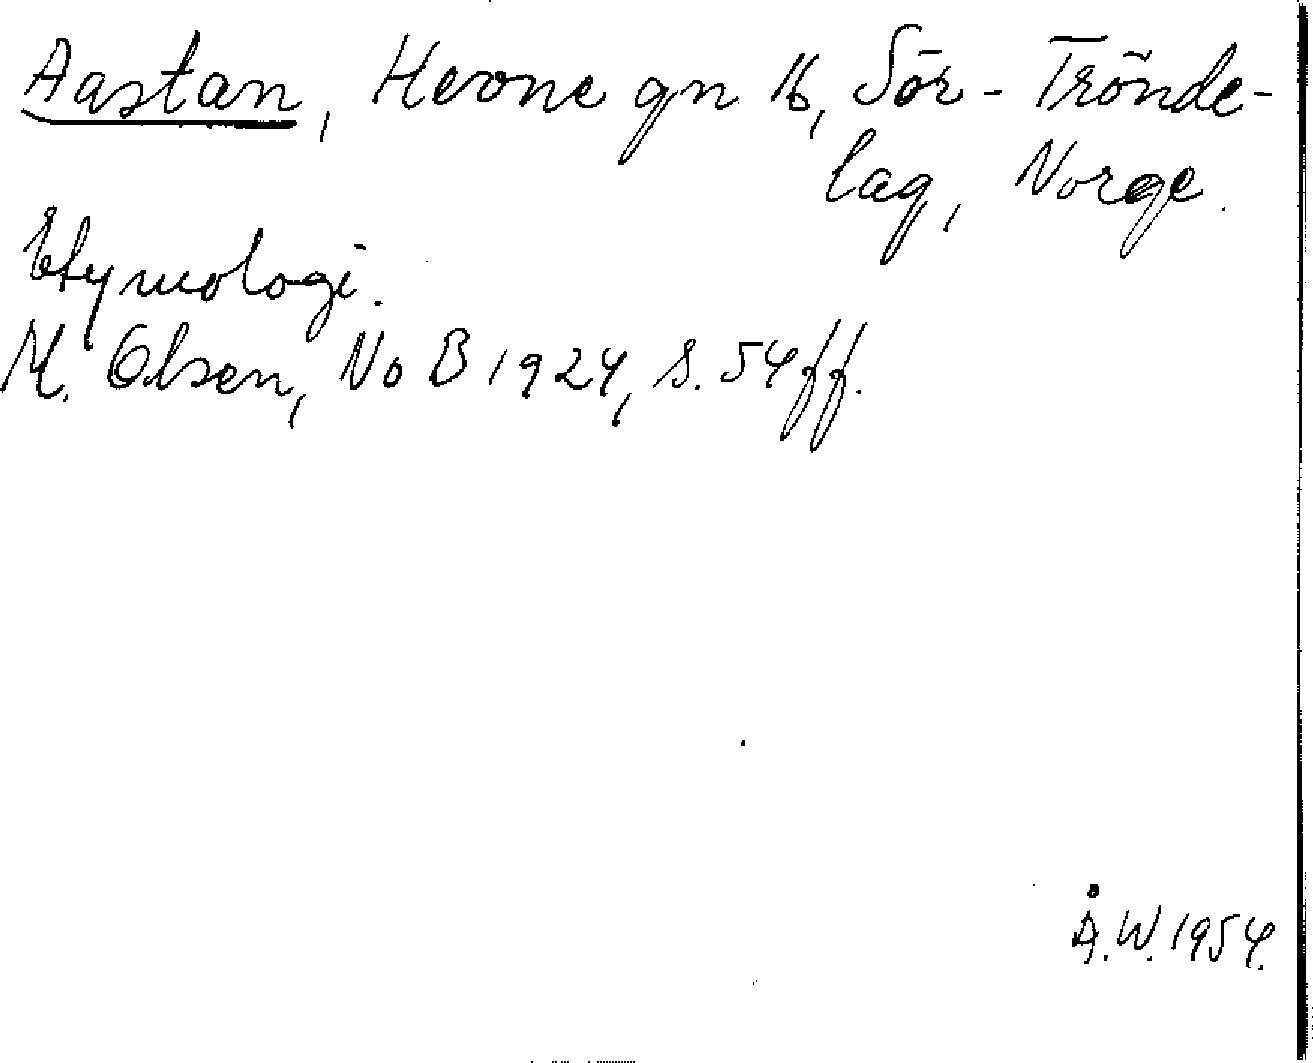 Aastan, Hevne gn 16, Sör-Trönde-
lag, Norge.
Etymologi.
M. Olsen, NoB 1924, s. 54ff.
Å.W. 1954.